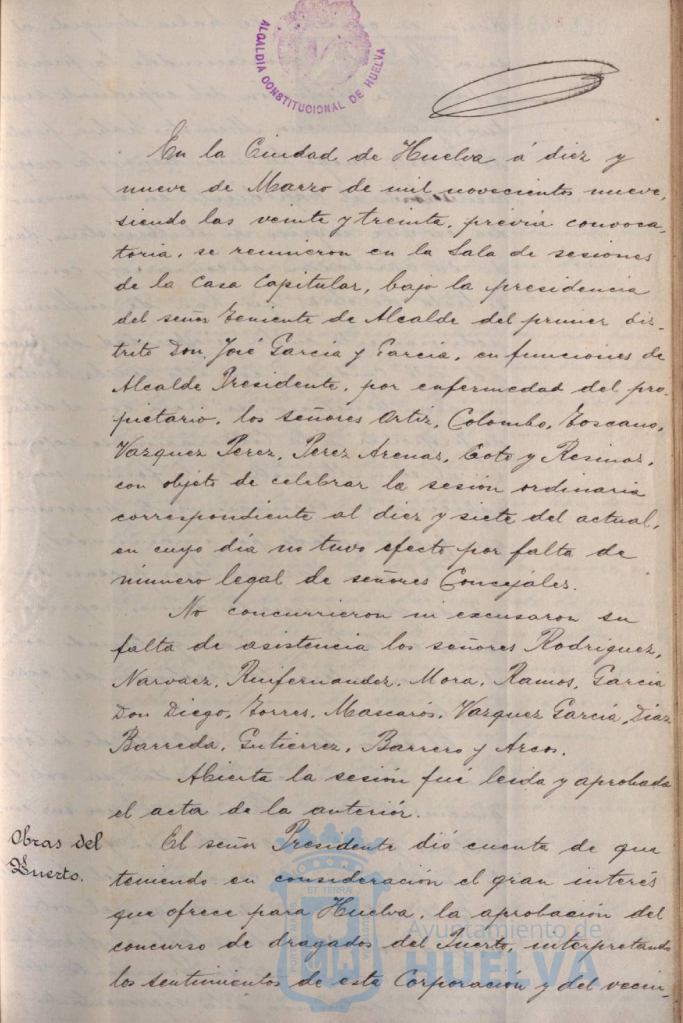 ALCALDIA CONSTITUCIONAL DE HUELVA
En la Ciudad de Huelva á diez y
nueve de Marzo de mil novecientos nueve,
siendo las veinte y treinta, previa convoca-
toria, se reunieron en la Sala de sesiones
de la Casa Capitular, bajo la presidencia
del señor Teniente de Alcalde del primer dis-
trito Don José García y García, en funciones de
Alcalde Presidente, por enfermedad del pro-
pietario, los señores Ortiz, Colombo, Toscano,
Vazquez Perez, Perez Arenas, Coto y Resinas,
con objeto de celebrar la sesión ordinaria
correspondiente al diez y siete del actual,
en cuyo día no tuvo efecto por falta de
número legal de señores Concejales.
No concurrieron ni excusaron su
falta de asistencia los señores Rodriguez,
Narvaez, Ruifernandez, Mora, Ramos, García
Don Diego, Torres, Mascarós, Vazquez García, Diaz
Barreda, Gutierrez, Barrero y Arcos.
Abierta la sesión fué leida y aprobada
el acta de la anteriór.
Obras del
Puerto.
El señor Presidente dió cuenta de que
teniendo en consideración el gran interés
que ofrece para Huelva, la aprobación del
concurso de dragados del Puerto, interpretando
los sentimientos de esta Corporación y del vecin-
ET TERRA
Ayuntamiento de
HUELVA